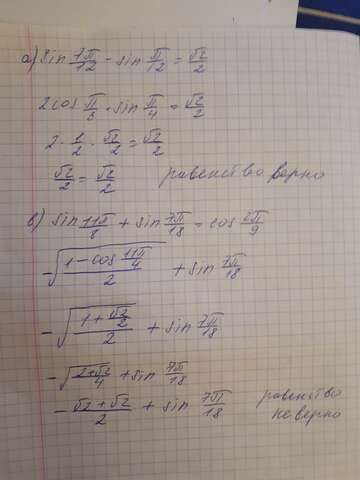 а) sin 7π/12 - sin π/12 = √2/2
2cos π/3 · sin π/4 = √2/2
2 · 1/2 · √2/2 = √2/2
√2/2 = √2/2 равенство верно
в) sin 11π/8 + sin 7π/18 = cos 2π/9
-√((1-cos 11π/4)/2) + sin 7π/18
-√((1+√2/2)/2) + sin 7π/18
-√((2+√2)/4) + sin 7π/18
-(√2+√2)/2 + sin 7π/18 равенство
не верно